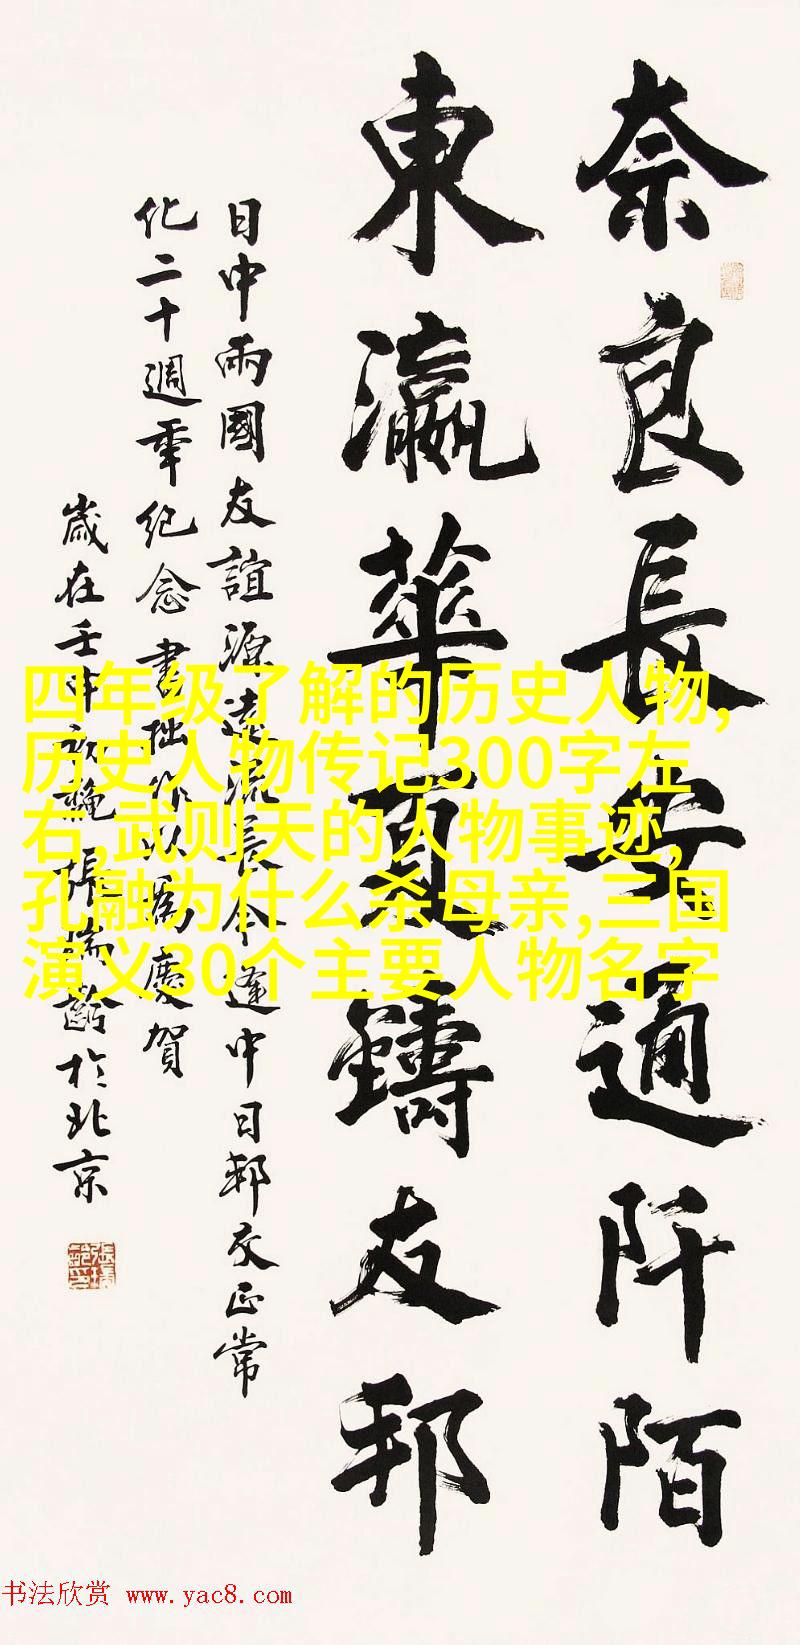 奈良長安通阡陌
東瀛華夏鑄友邦
日中兩國友誼源遠流長今逢中日邦交正常
化二十週年纪念書拙作以為慶賀
歲在壬申初秋張瑞齡於北京
四年级了解的历史人物,
历史人物传记300字左
右,武则天的人物事迹,
孔融为什么杀母亲,三国
演义30个主要人物名字
书法欣赏 www.yac8.com